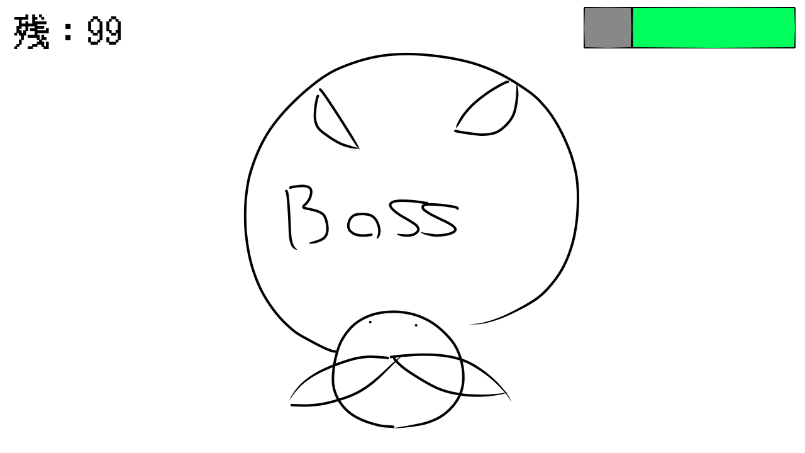 残：99
Boss